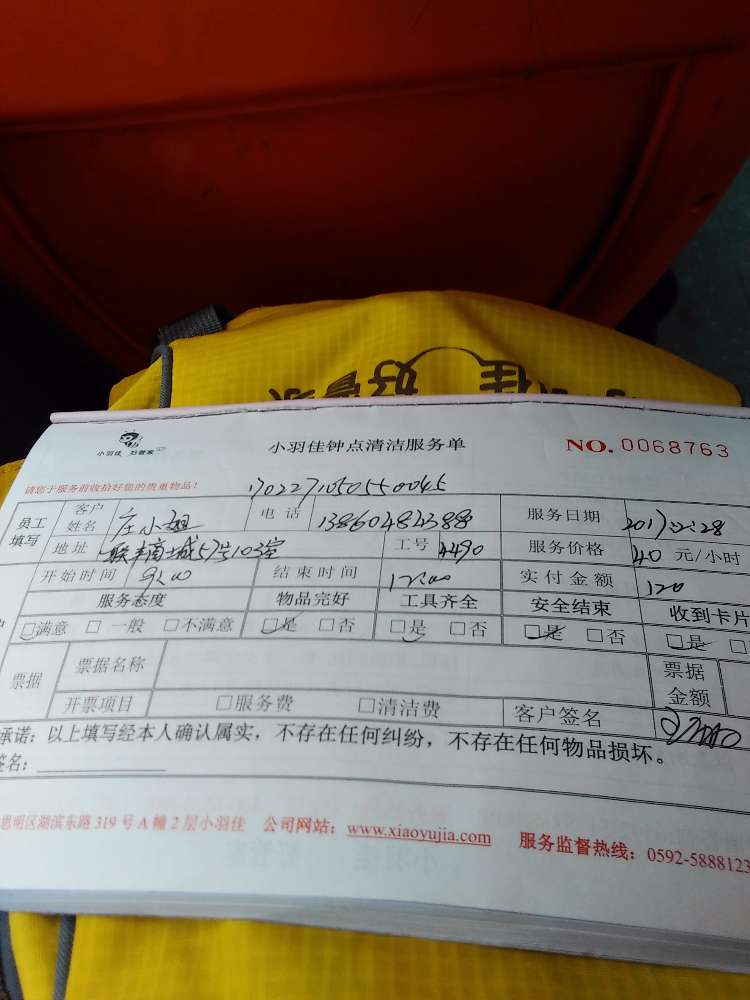 好管家
佳
小羽佳 好管家
小羽佳钟点清洁服务单
NO. 0068763
请您于服务前收拾好您的贵重物品!
170227105055 0045
员工填写 客户姓名 庄小姐 电话 13860484388 服务日期 2017.2.28
地址 联丰商城57号103室 工号 4490 服务价格 40 元/小时
开始时间 9:00 结束时间 12:00 实付金额 120
服务态度 物品完好 工具齐全 安全结束 收到卡片
□满意 □一般 □不满意 □是 □否 □是 □否 □是 □否 □是 □
票据 票据名称 票据金额
开票项目 □服务费 □清洁费 客户签名
承诺:以上填写经本人确认属实,不存在任何纠纷,不存在任何物品损坏。
签名:
思明区湖滨东路 319 号 A 幢 2 层小羽佳 公司网站:www.xiaoyujia.com 服务监督热线:0592-5888123